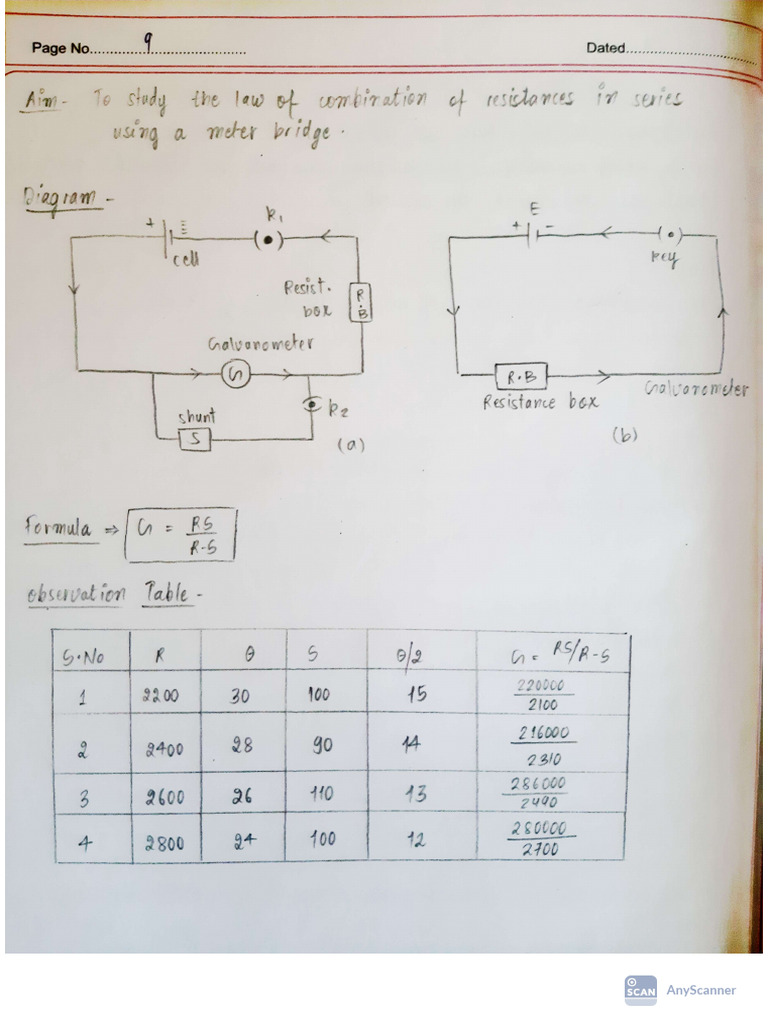 Page No. 9
Dated
Aim - To study the law of combination of resistances in series
using a meter bridge.
Diagram -
+ K1
cell
Resist.
box
R.B
Galvanometer
G
K2
shunt
S
(a)
E
+ -
key
R.B
Resistance box
Galvanometer
(b)
Formula ⇒ G = RS/R-S
Observation Table -
S.No R θ S θ/2 G = RS/R-S
1 2200 30 100 15 220000/2100
2 2400 28 90 14 216000/2310
3 2600 26 110 13 286000/2490
4 2800 24 100 12 280000/2700
SCAN AnyScanner